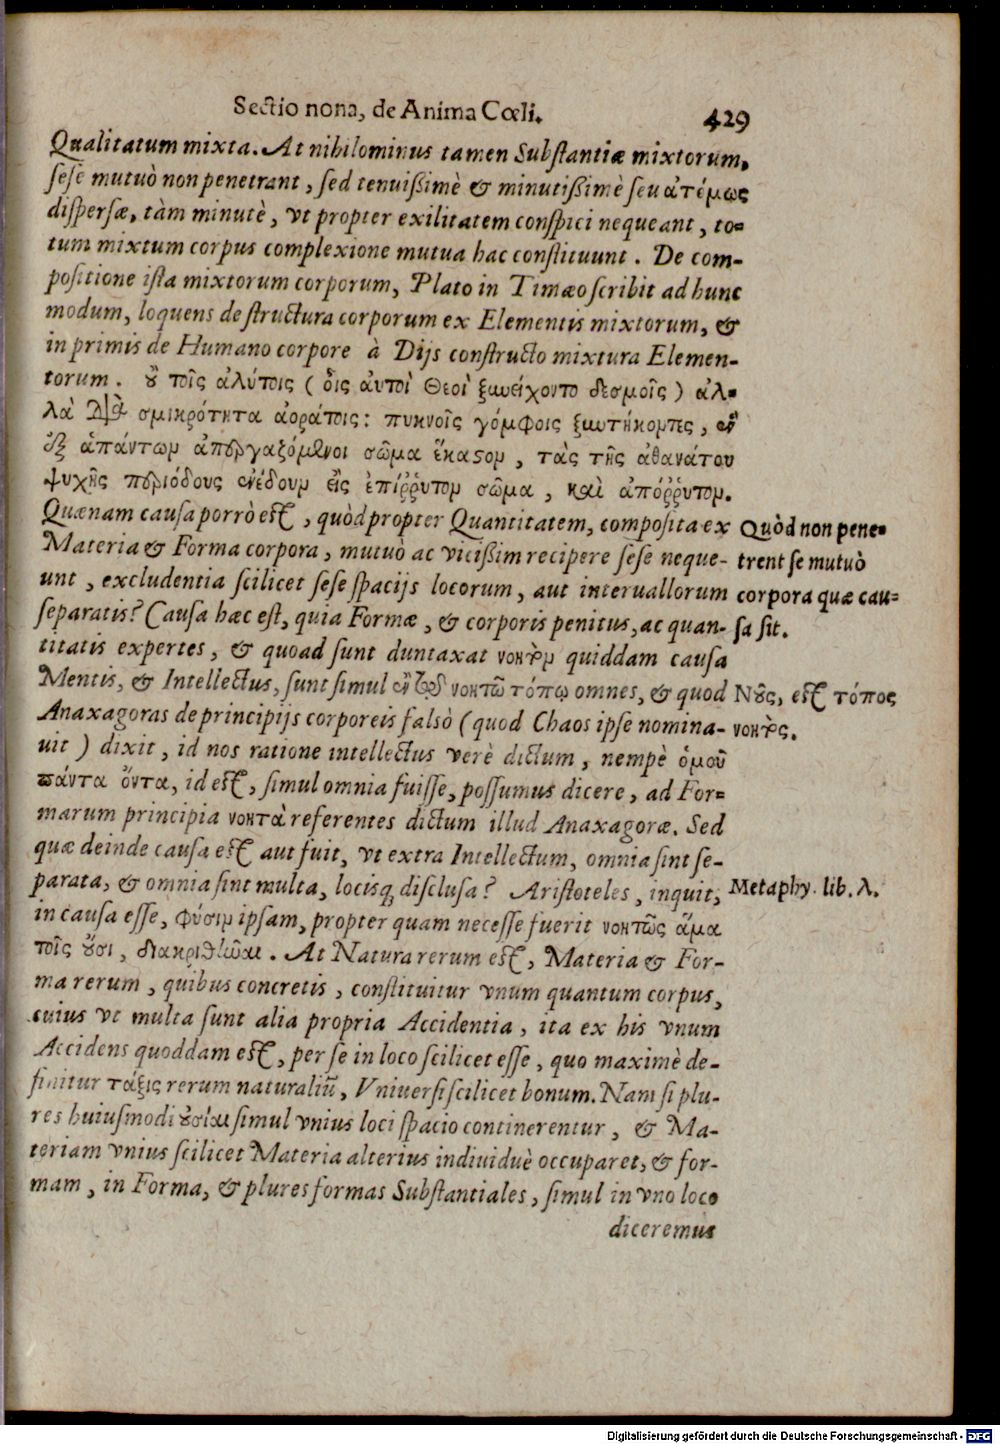 Sectio nona, de Anima Cœli. 429
Qualitatum mixta. At nihilominus tamen Substantiæ mixtorum,
sese mutuò non penetrant, sed tenuißimè & minutißimè seu ἀτόμως
dispersæ, tàm minutè, vt propter exilitatem conspici nequeant, to-
tum mixtum corpus complexione mutua hac constituunt. De com-
positione ista mixtorum corporum, Plato in Timæo scribit ad hunc
modum, loquens de structura corporum ex Elementis mixtorum, &
in primis de Humano corpore à Dijs constructo mixtura Elemen-
torum. ȣ τοῖς ἀλύτοις (οἷς ἀυτοὶ Θεοὶ ξυνείχοντο δεσμοῖς) ἀλ-
λὰ διὰ σμικρότητα ἀοράτοις: πυκνοῖς γόμφοις ξυντήκοντες, ἓν
ἐξ ἁπάντων ἀπεργαζόμενοι σῶμα ἕκαστον, τὰς τῆς ἀθανάτου
ψυχῆς περιόδους ἐνέδουν εἰς ἐπίῤῥυτον σῶμα, καὶ ἀπόῤῥυτον.
Quænam causa porrò est, quòd propter Quantitatem, composita ex
Materia & Forma corpora, mutuò ac vicißim recipere sese neque-
unt, excludentia scilicet sese spacijs locorum, aut interuallorum
separatis? Causa hæc est, quia Formæ, & corporis penitus, ac quan-
titatis expertes, & quoad sunt duntaxat νοητὸν quiddam causa
Mentis, & Intellectus, sunt simul ἐν τῷ νοητῷ τόπῳ omnes, & quod
Anaxagoras de principijs corporeis falsò (quod Chaos ipse nomina-
uit) dixit, id nos ratione intellectus verè dictum, nempè ὁμοῦ
πάντα ὄντα, id est, simul omnia fuisse, possumus dicere, ad For-
marum principia νοητὰ referentes dictum illud Anaxagoræ. Sed
quæ deinde causa est aut fuit, vt extra Intellectum, omnia sint se-
parata, & omnia sint multa, locisq; disclusa? Aristoteles, inquit,
in causa esse, φύσιν ipsam, propter quam necesse fuerit νοητῶς ἅμα
τοῖς ȣσι, διακριθῆναι. At Natura rerum est, Materia & For-
ma rerum, quibus concretis, constituitur vnum quantum corpus,
cuius vt multa sunt alia propria Accidentia, ita ex his vnum
Accidens quoddam est, per se in loco scilicet esse, quo maximè de-
finitur τάξις rerum naturaliū, Vniuersi scilicet bonum. Nam si plu-
res huiusmodi ȣσίαι simul vnius loci spacio continerentur, & Ma-
teriam vnius scilicet Materia alterius indiuiduè occuparet, & for-
mam, in Forma, & plures formas Substantiales, simul in vno loco
diceremus
Quòd non pene-
trent se mutuò
corpora quæ cau-
sa sit.
Νȣς, est τόπος
νοητός.
Metaphy. lib. λ.
Digitalisierung gefördert durch die Deutsche Forschungsgemeinschaft - DFG